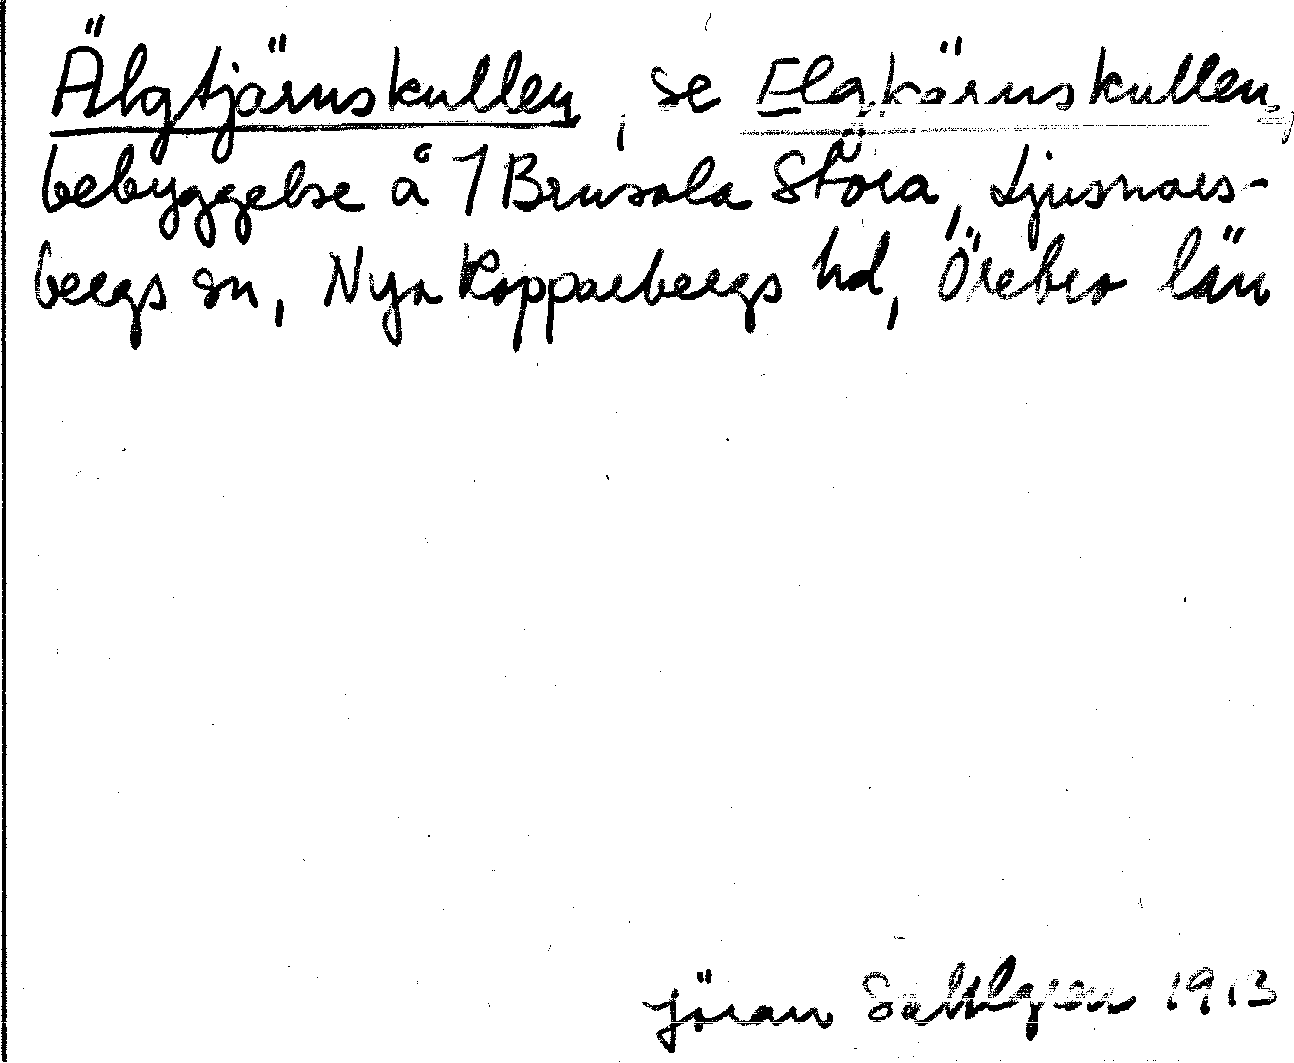 Älgtjärnskullen, se Elgkärnskullen,
bebyggelse å 1 Brusala Stora, Ljusnars-
bergs sn, Nya Kopparbergs hd, Örebro län
Jöran Sahlgren 1913